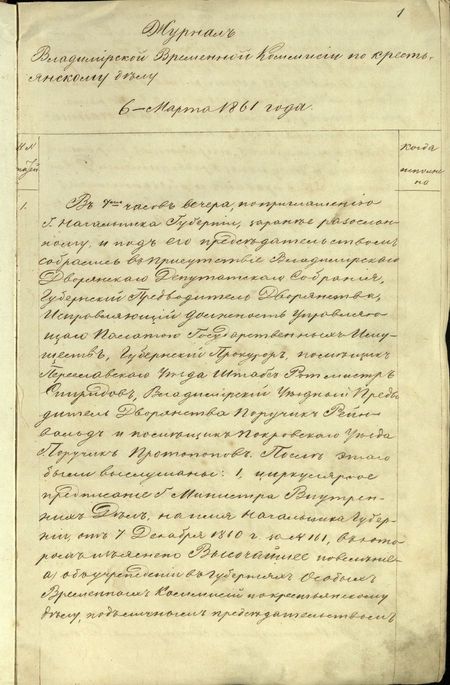 1
Журналъ
Владимірской Временной Коммисіи по кресть-
янскому дѣлу
6 Марта 1861 года.
Когда
исполне
но
1.
Въ 7 часовъ вечера, по приглашенію
Г. Начальника Губерніи, заранѣе разослан-
ному, и подъ его предсѣдательствомъ
собрались въ Присутствіе Владимірскаго
Дворянскаго Депутатскаго Собранія,
Губернскій Предводитель Дворянства,
Исправляющій должность Управляю-
щаго Палатою Государственныхъ Иму-
ществъ, Губернскій Прокуроръ, помѣщикъ
Переславскаго Уѣзда Штабсъ Ротмистръ
Владимірскій Уѣздный Предво
дитель Дворянства Поручикъ Рейн-
вальдъ и помѣщикъ Покровскаго Уѣзда
Поручикъ Протопоповъ. Послѣ этаго
были выслушаны: 1, циркулярное
предписаніе Г. Министра Внутрен-
нихъ Дѣлъ, на имя Начальника Губер-
ніи, отъ 7 Декабря 1860 г. за № 161, въ кото
ромъ изъяснено Высочайшее повелѣніе
а) объ учрежденіи въ Губерніяхъ Особыхъ
Временныхъ Коммисій по крестьянскому
дѣлу, подъ личнымъ предсѣдательствомъ